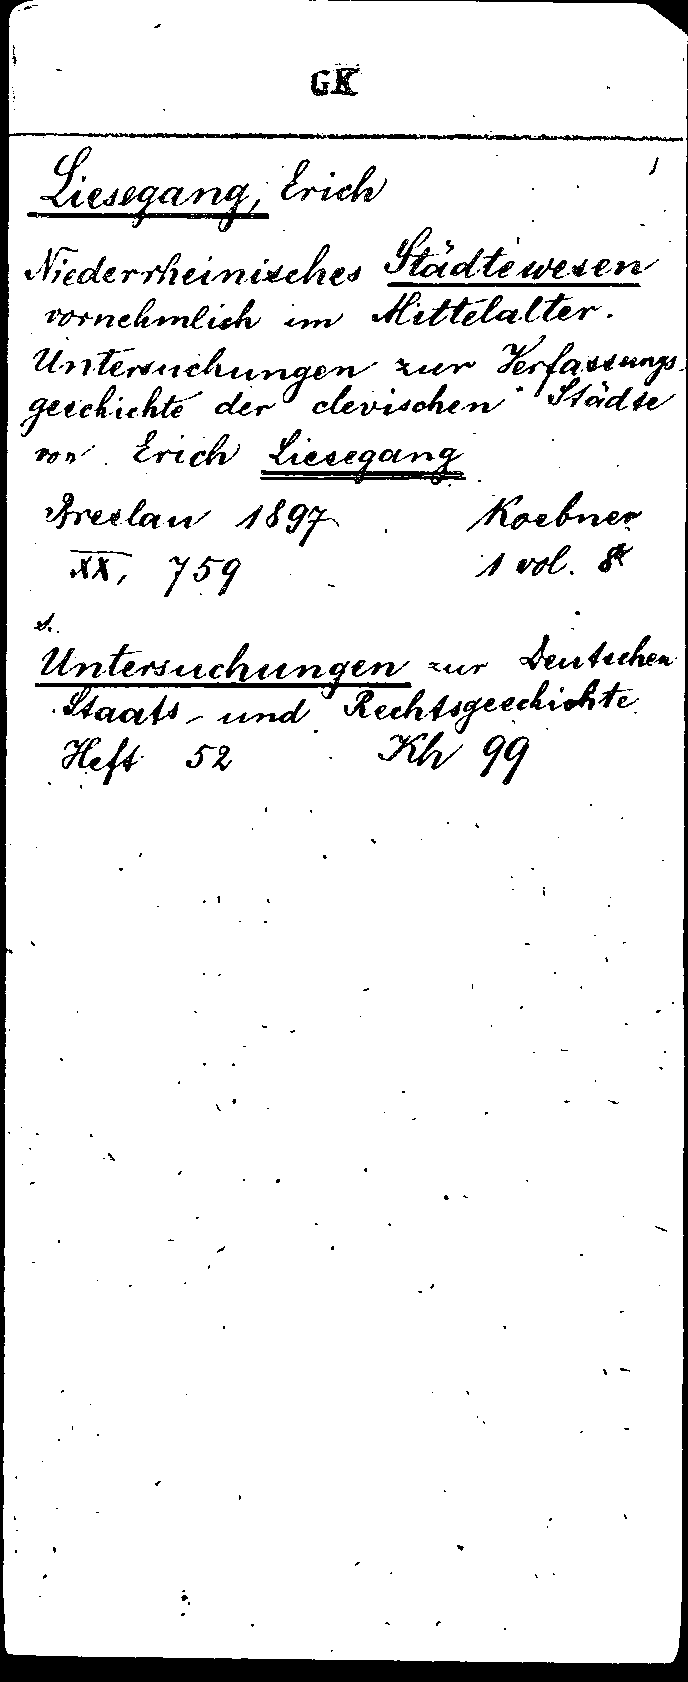 GK
Liesegang, Erich
Niederrheinisches Städtewesen
vornehmlich im Mittelalter.
Untersuchungen zur Verfassungs-
geschichte der clevischen Städte
von Erich Liesegang
Breslau 1897 Koebner
XX, 759 1 vol. 8°
s.
Untersuchungen zur Deutschen
Staats- und Rechtsgeschichte
Heft 52 Kh 99